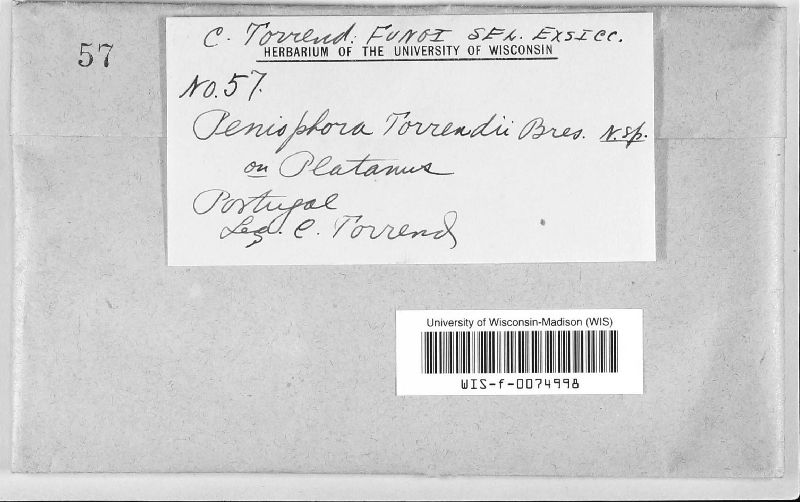 57
C. Torrend: FUNGI SEL. EXSICC.
HERBARIUM OF THE UNIVERSITY OF WISCONSIN
No. 57.
Peniophora Torrendii Bres. N.sp.
on Platanus
Portugal
Leg. C. Torrend
University of Wisconsin-Madison (WIS)
WIS-f-0074998